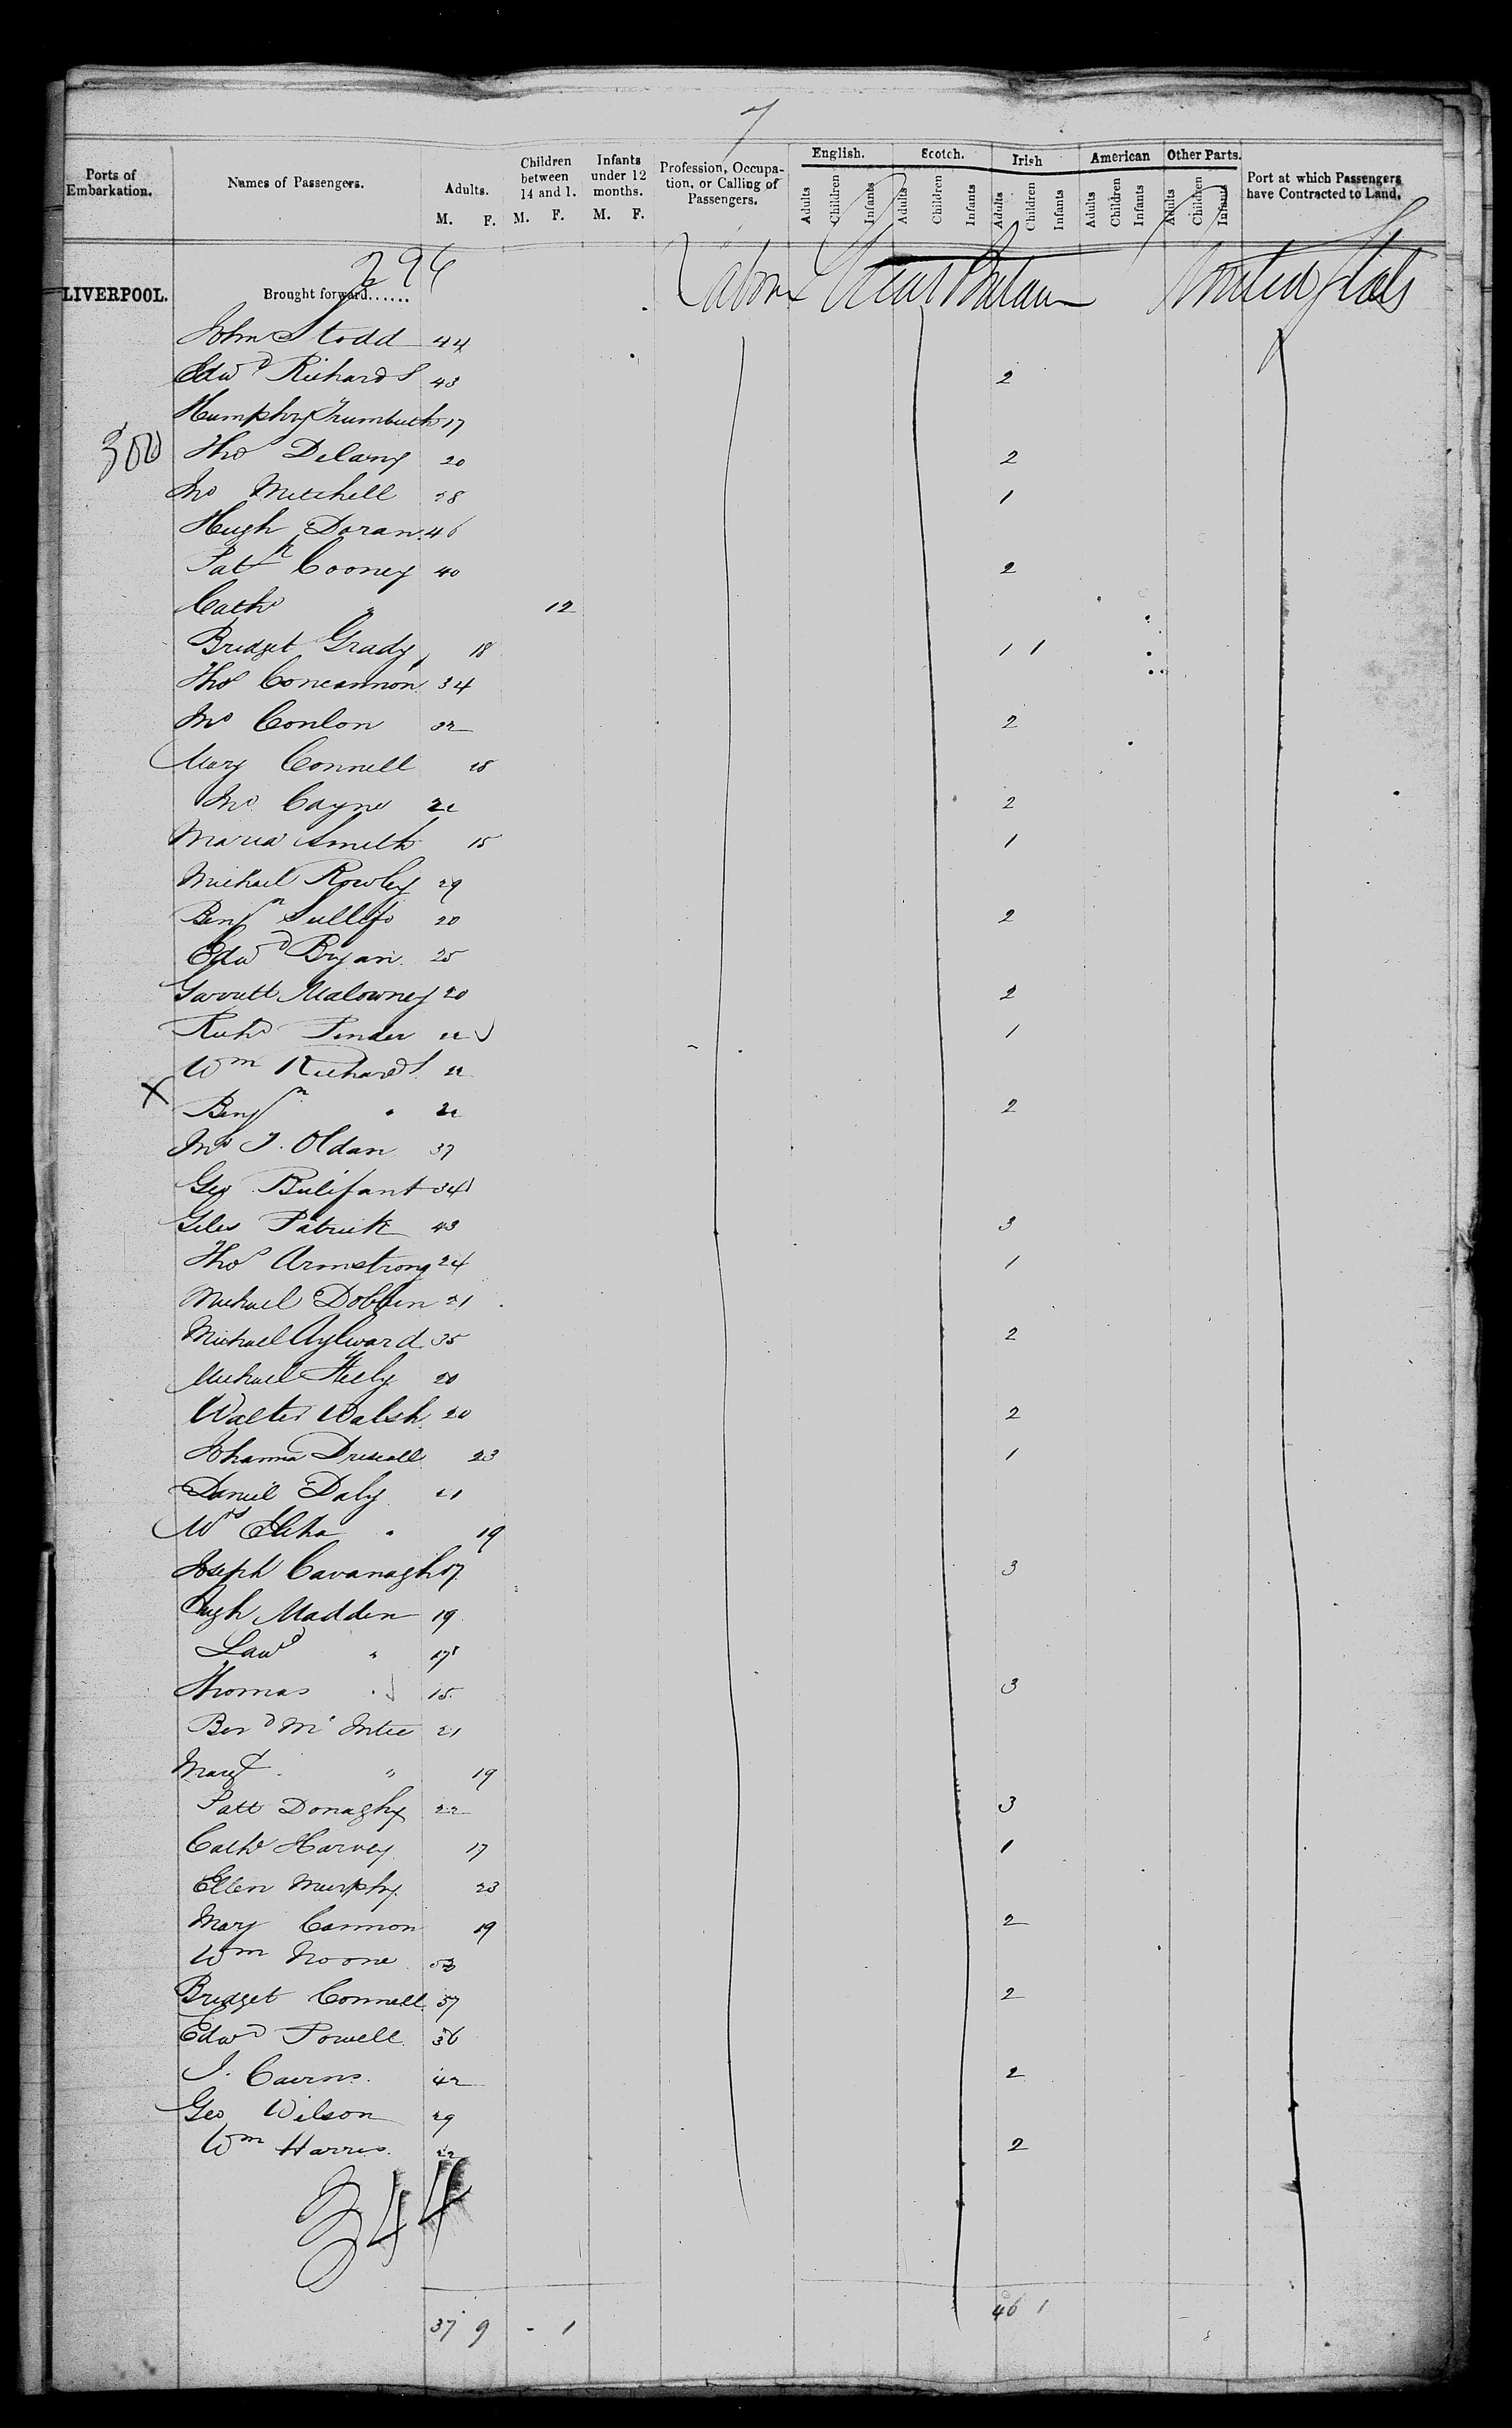 7
Ports of Embarkation. Names of Passengers. Adults. M. F. Children between 14 and 1. M. F. Infants under 12 months. M. F. Profession, Occupation, or Calling of Passengers. English. Adults Children Infants Scotch. Adults Children Infants Irish Adults Children Infants American Adults Children Infants Other Parts. Adults Children Infants Port at which Passengers have Contracted to Land.
296
LIVERPOOL. Brought forward...... Labor Great Britain United States
John Stodd 44
Edwd Richards 43 2
Humphry 17
300 Thos Delany 20 2
Jno Mitchell 28 1
Hugh Doran 46
Patk Cooney 40 2
Cath " 12
Bridget Grady 18 1 1
Thos Concannon 34
Jno Conlon 32 2
Mary Connell 18
Jno Cayne 22 2
Maria Smith 15 1
Michael Rowley 29
Benjn 20 2
Edwd Bryan 25
Garrett Malowney 20 2
Richd Pender 22 1
Wm Richards 22
X Benjn " 22 2
Jno J. Oldan 37
Geo Bulifant 34
Giles Patrick 43 3
Thos Armstrong 24 1
Michael Dobbin 21
Michael Aylward 35 2
Michael Heely 20
Walter Walsh 20 2
Johanna Driscoll 23 1
Daniel Daly 21
Mrs " 19
Joseph Cavanagh 17 3
Hugh Madden 19
Law " 17
Thomas " 15 3
Bernd Mc Intee 21
Margt " 19
Patt Donaghy 22 3
Cath Harvey 17 1
Ellen Murphy 23
Mary Cannon 19 2
Wm Noone 53
Bridget Connell 37 2
Edwd Powell 36
J. Cairns 42 2
Geo Wilson 29
Wm Harris 22 2
344
37 9 - 1 46 1